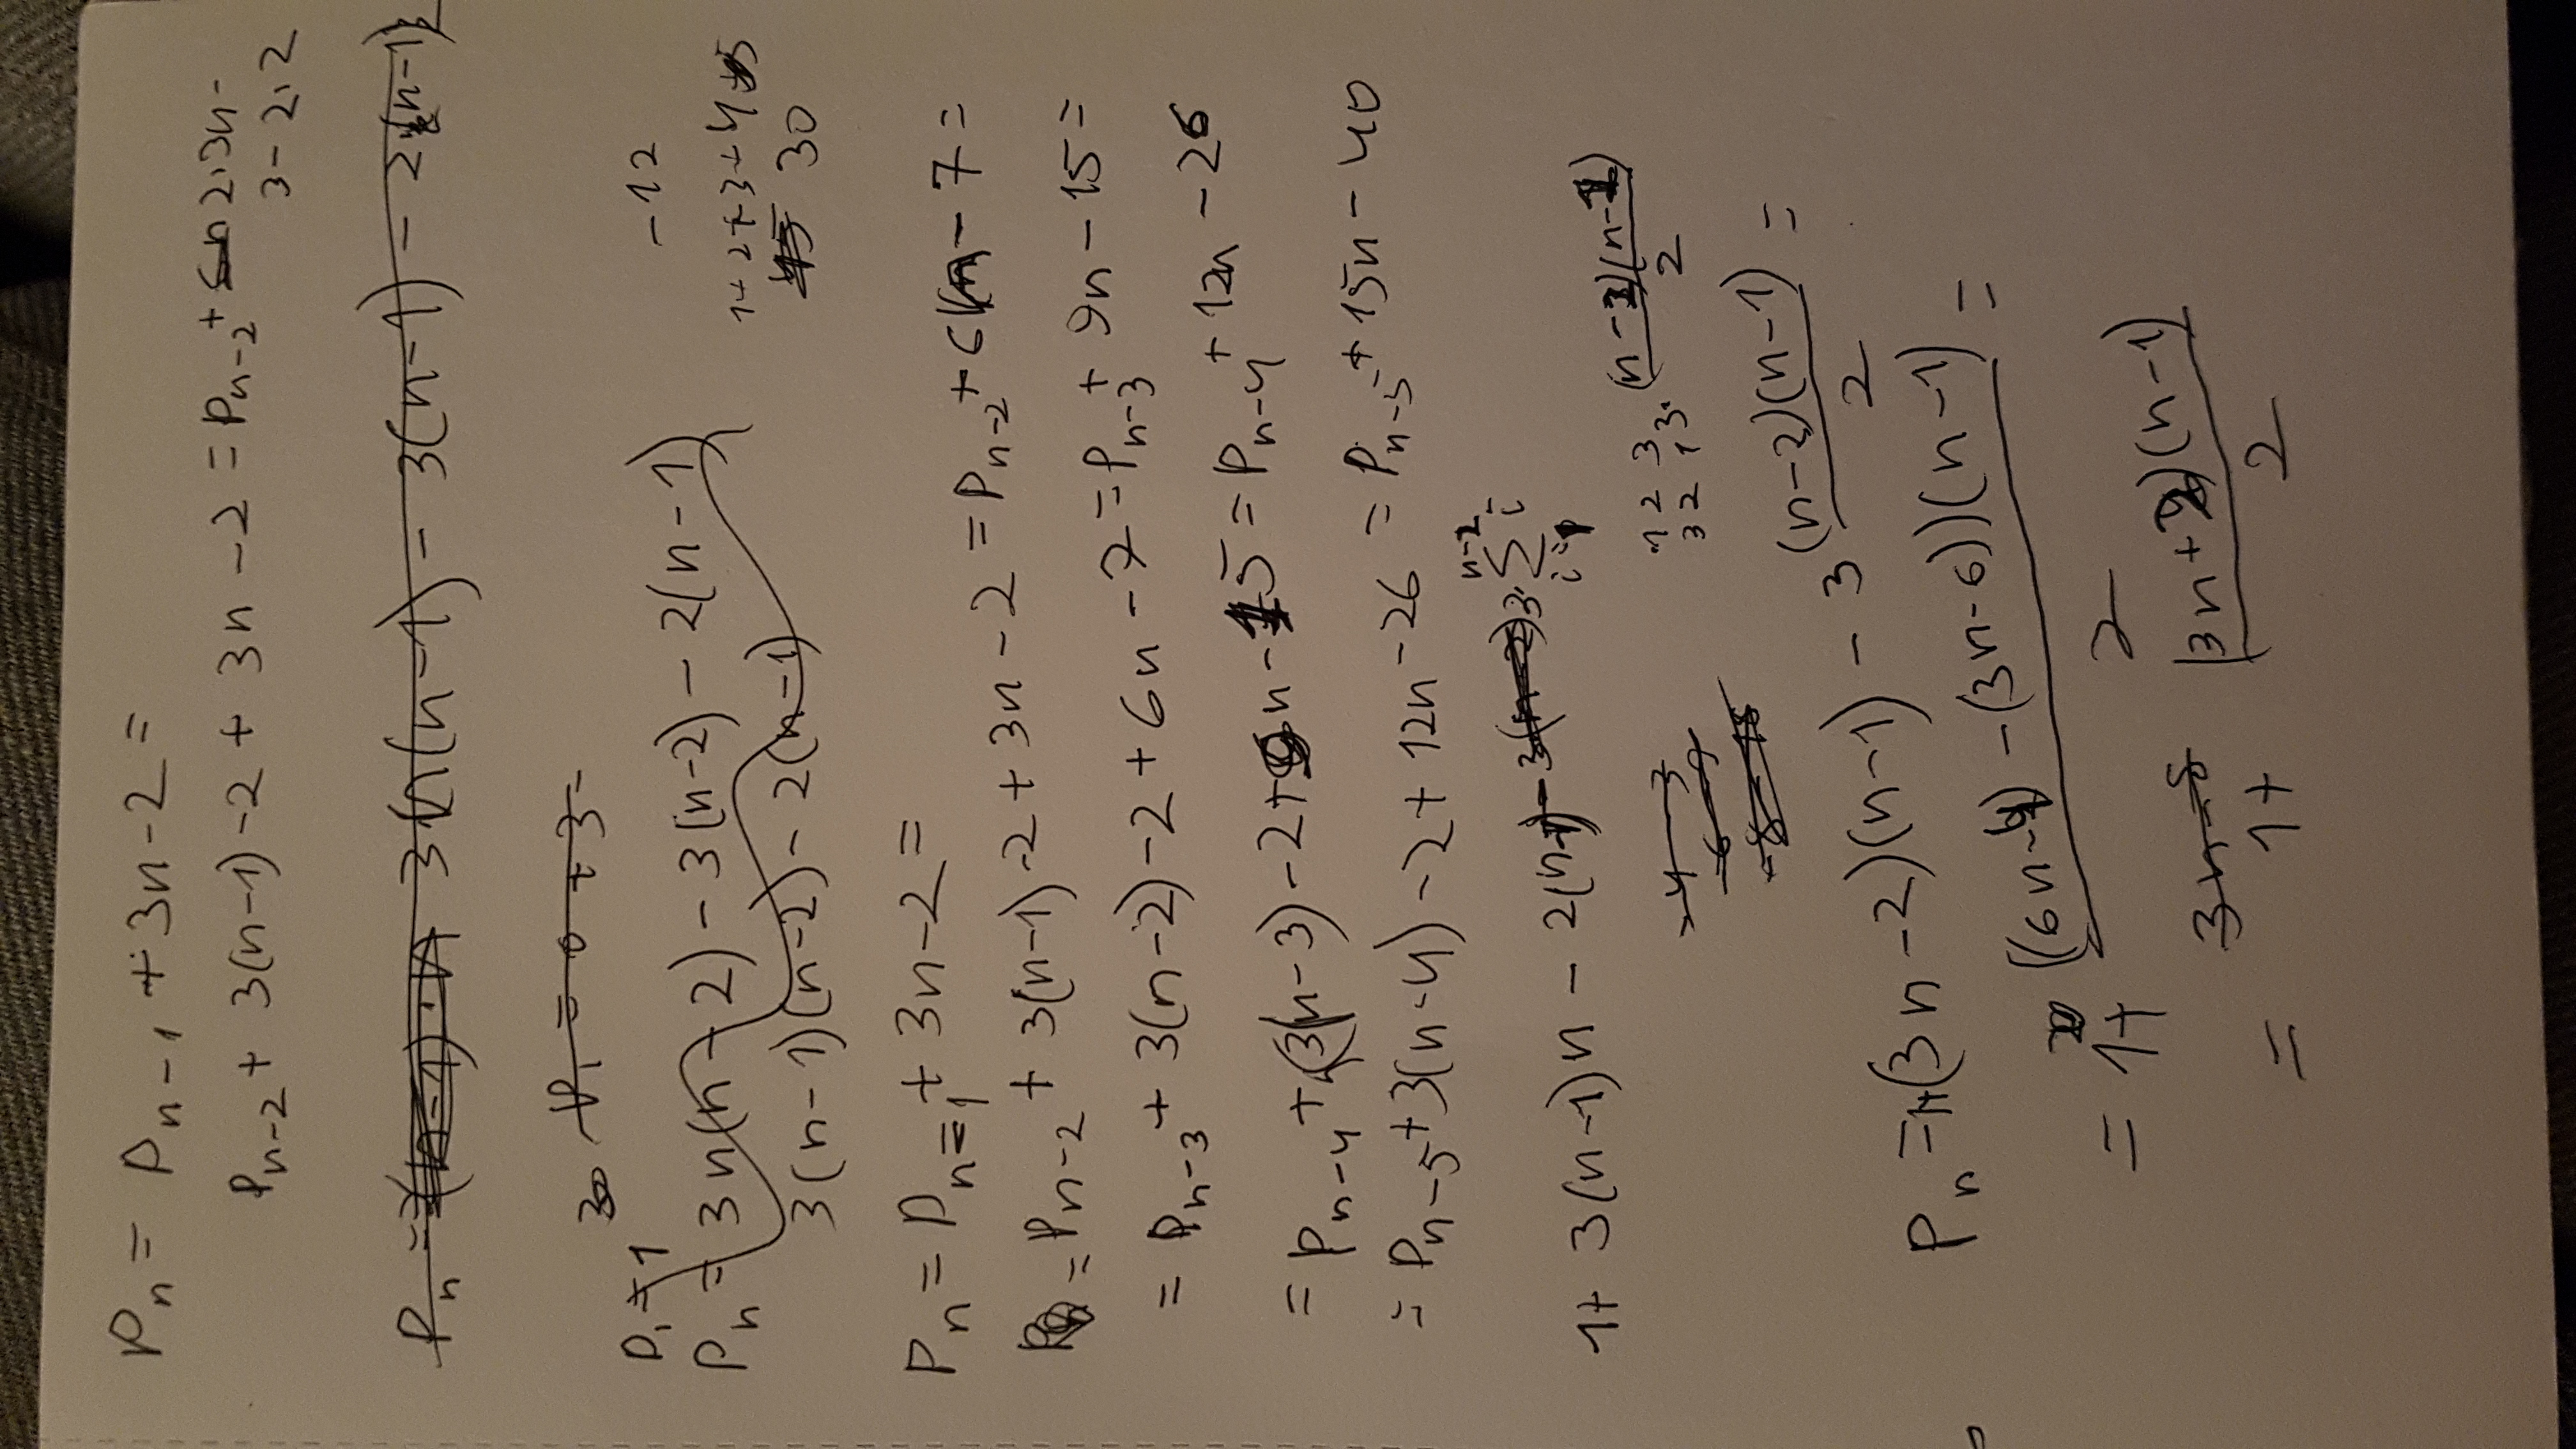 Pₙ = Pₙ₋₁ + 3n - 2 =
Pₙ₋₂ + 3(n-1) - 2 + 3n - 2 = Pₙ₋₂ + 2·3n -
3 - 2·2
Pₙ = 3(n(n-1) - 3(n-1) - 2(n-1)
P₁ = 0 + 3 -
P₁ = 1
-12
Pₙ = 3n(n-2) - 3(n-2) - 2(n-1)
1+2+3+4+5
3(n-1)(n-2) - 2(n-1)
45 30
Pₙ = Pₙ₋₁ + 3n - 2 =
= Pₙ₋₂ + 3(n-1) - 2 + 3n - 2 = Pₙ₋₂ + 6(n) - 7 =
= Pₙ₋₃ + 3(n-2) - 2 + 6n - 7 = Pₙ₋₃ + 9n - 15 =
= Pₙ₋₄ + (3(n-3) - 2 + 9n - 15 = Pₙ₋₄ + 12n - 26
= Pₙ₋₅ + 3(n-4) - 2 + 12n - 26 = Pₙ₋₅ + 15n - 40
n-2
1 + 3(n-1)n - 2(n-1) - 3(n-2) 3·∑ i
i=1
1 2 3
3 2 1 3· (n-2)(n-1)/2
-4 3
-6 9
-8 - 18
Pₙ = 1+(3n-2)(n-1) - 3 (n-2)(n-1)/2 =
= 1+ ((6n-4) - (3n-6))(n-1)/2 =
3n-8
= 1+ (3n+2)(n-1)/2